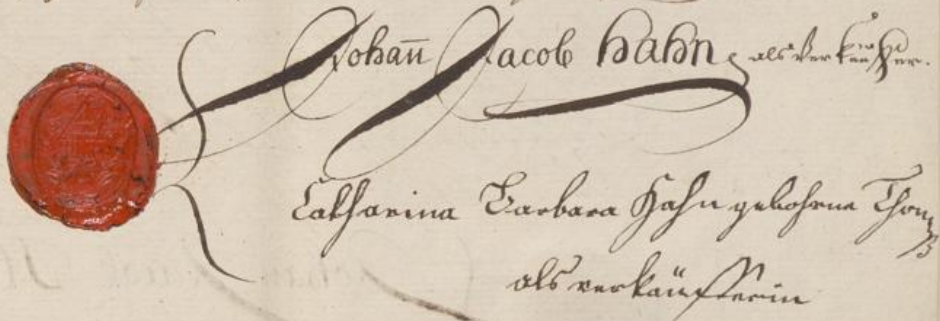 Johañ Jacob Hahn, als Verkäuffer.
Catharina Barbara Hahn gebohrne
als verkäufferin